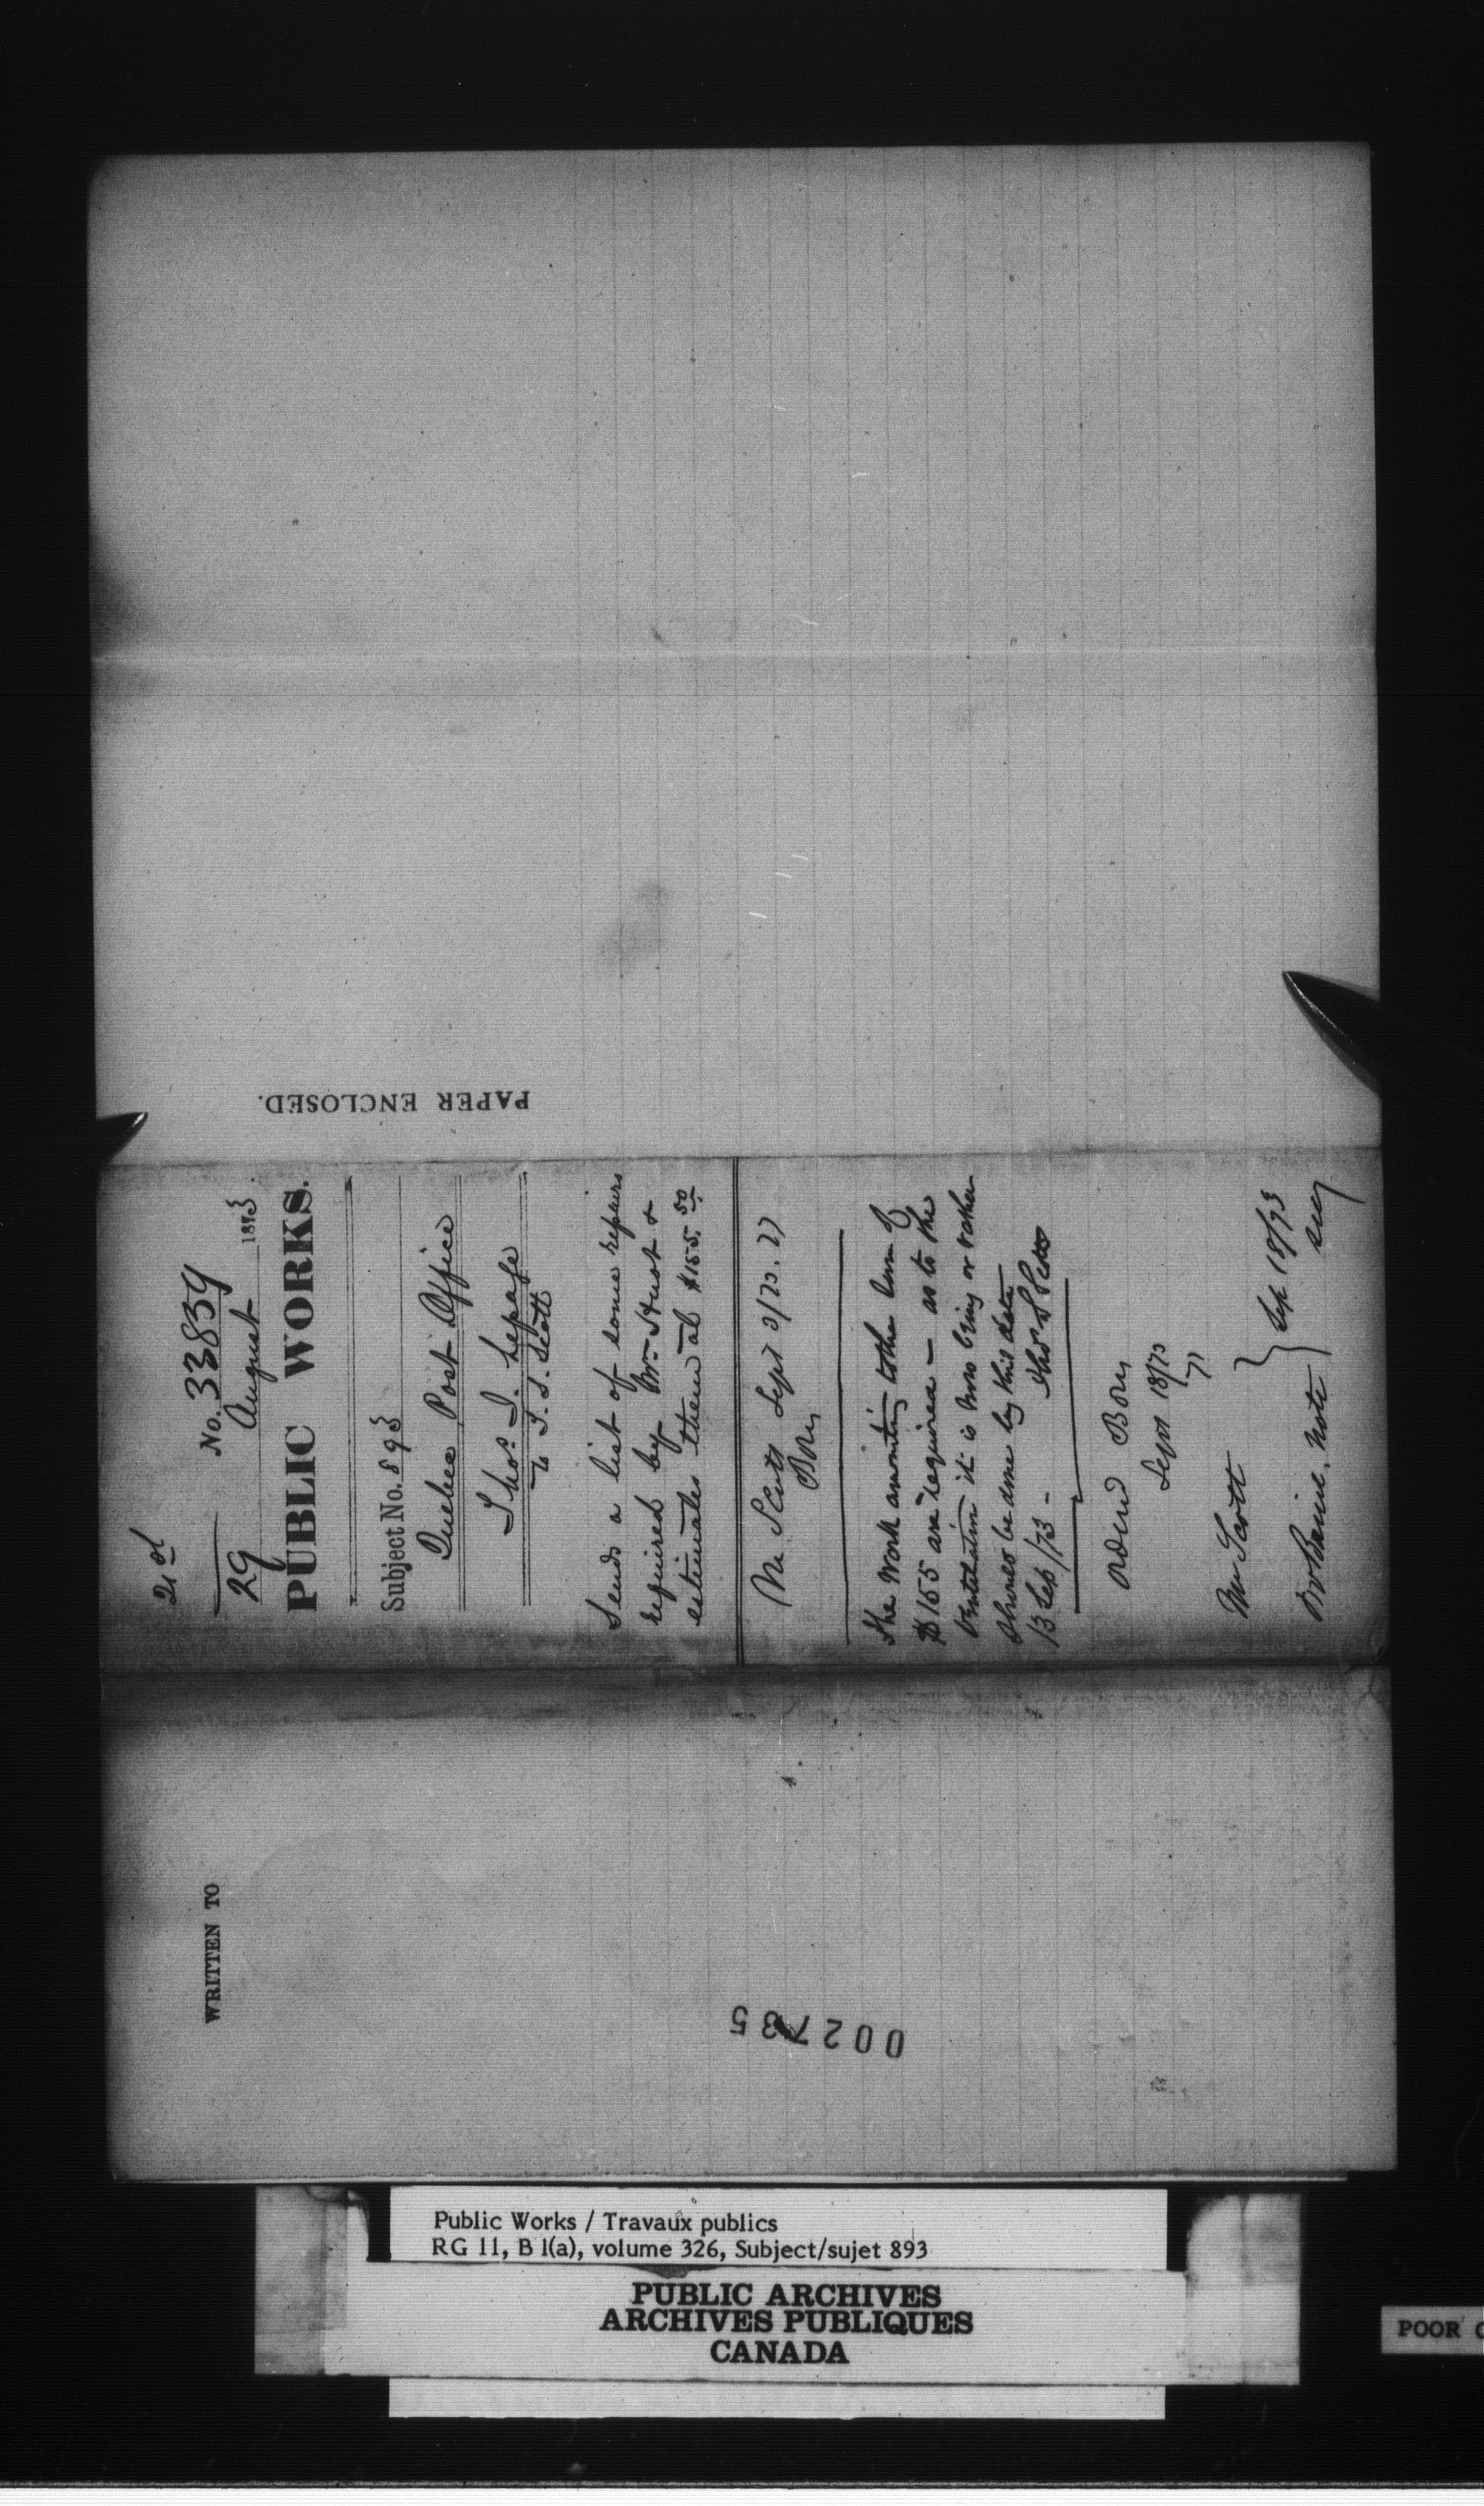 21st
No. 33839
29 August 1873.
PUBLIC WORKS.
Subject No. 893
Quebec Post Office
Thos. I. Lepage
to T. S. Scott
Sends a list of some repairs
required by Mr. Huot &
estimates them at $155.50
Mr Scott Sept 3/73.
The work amounting to the sum of
$155 are required — as to the
ventilation it is now being or rather
should be done by this date
13 Sep/73 - Thos S Scott
Order
Sept 18/73
Mr Scott
Note } Sep 18/73
PAPER ENCLOSED.
WRITTEN TO
002735
Public Works / Travaux publics
RG 11, B 1(a), volume 326, Subject/sujet 893
PUBLIC ARCHIVES
ARCHIVES PUBLIQUES
CANADA
POOR